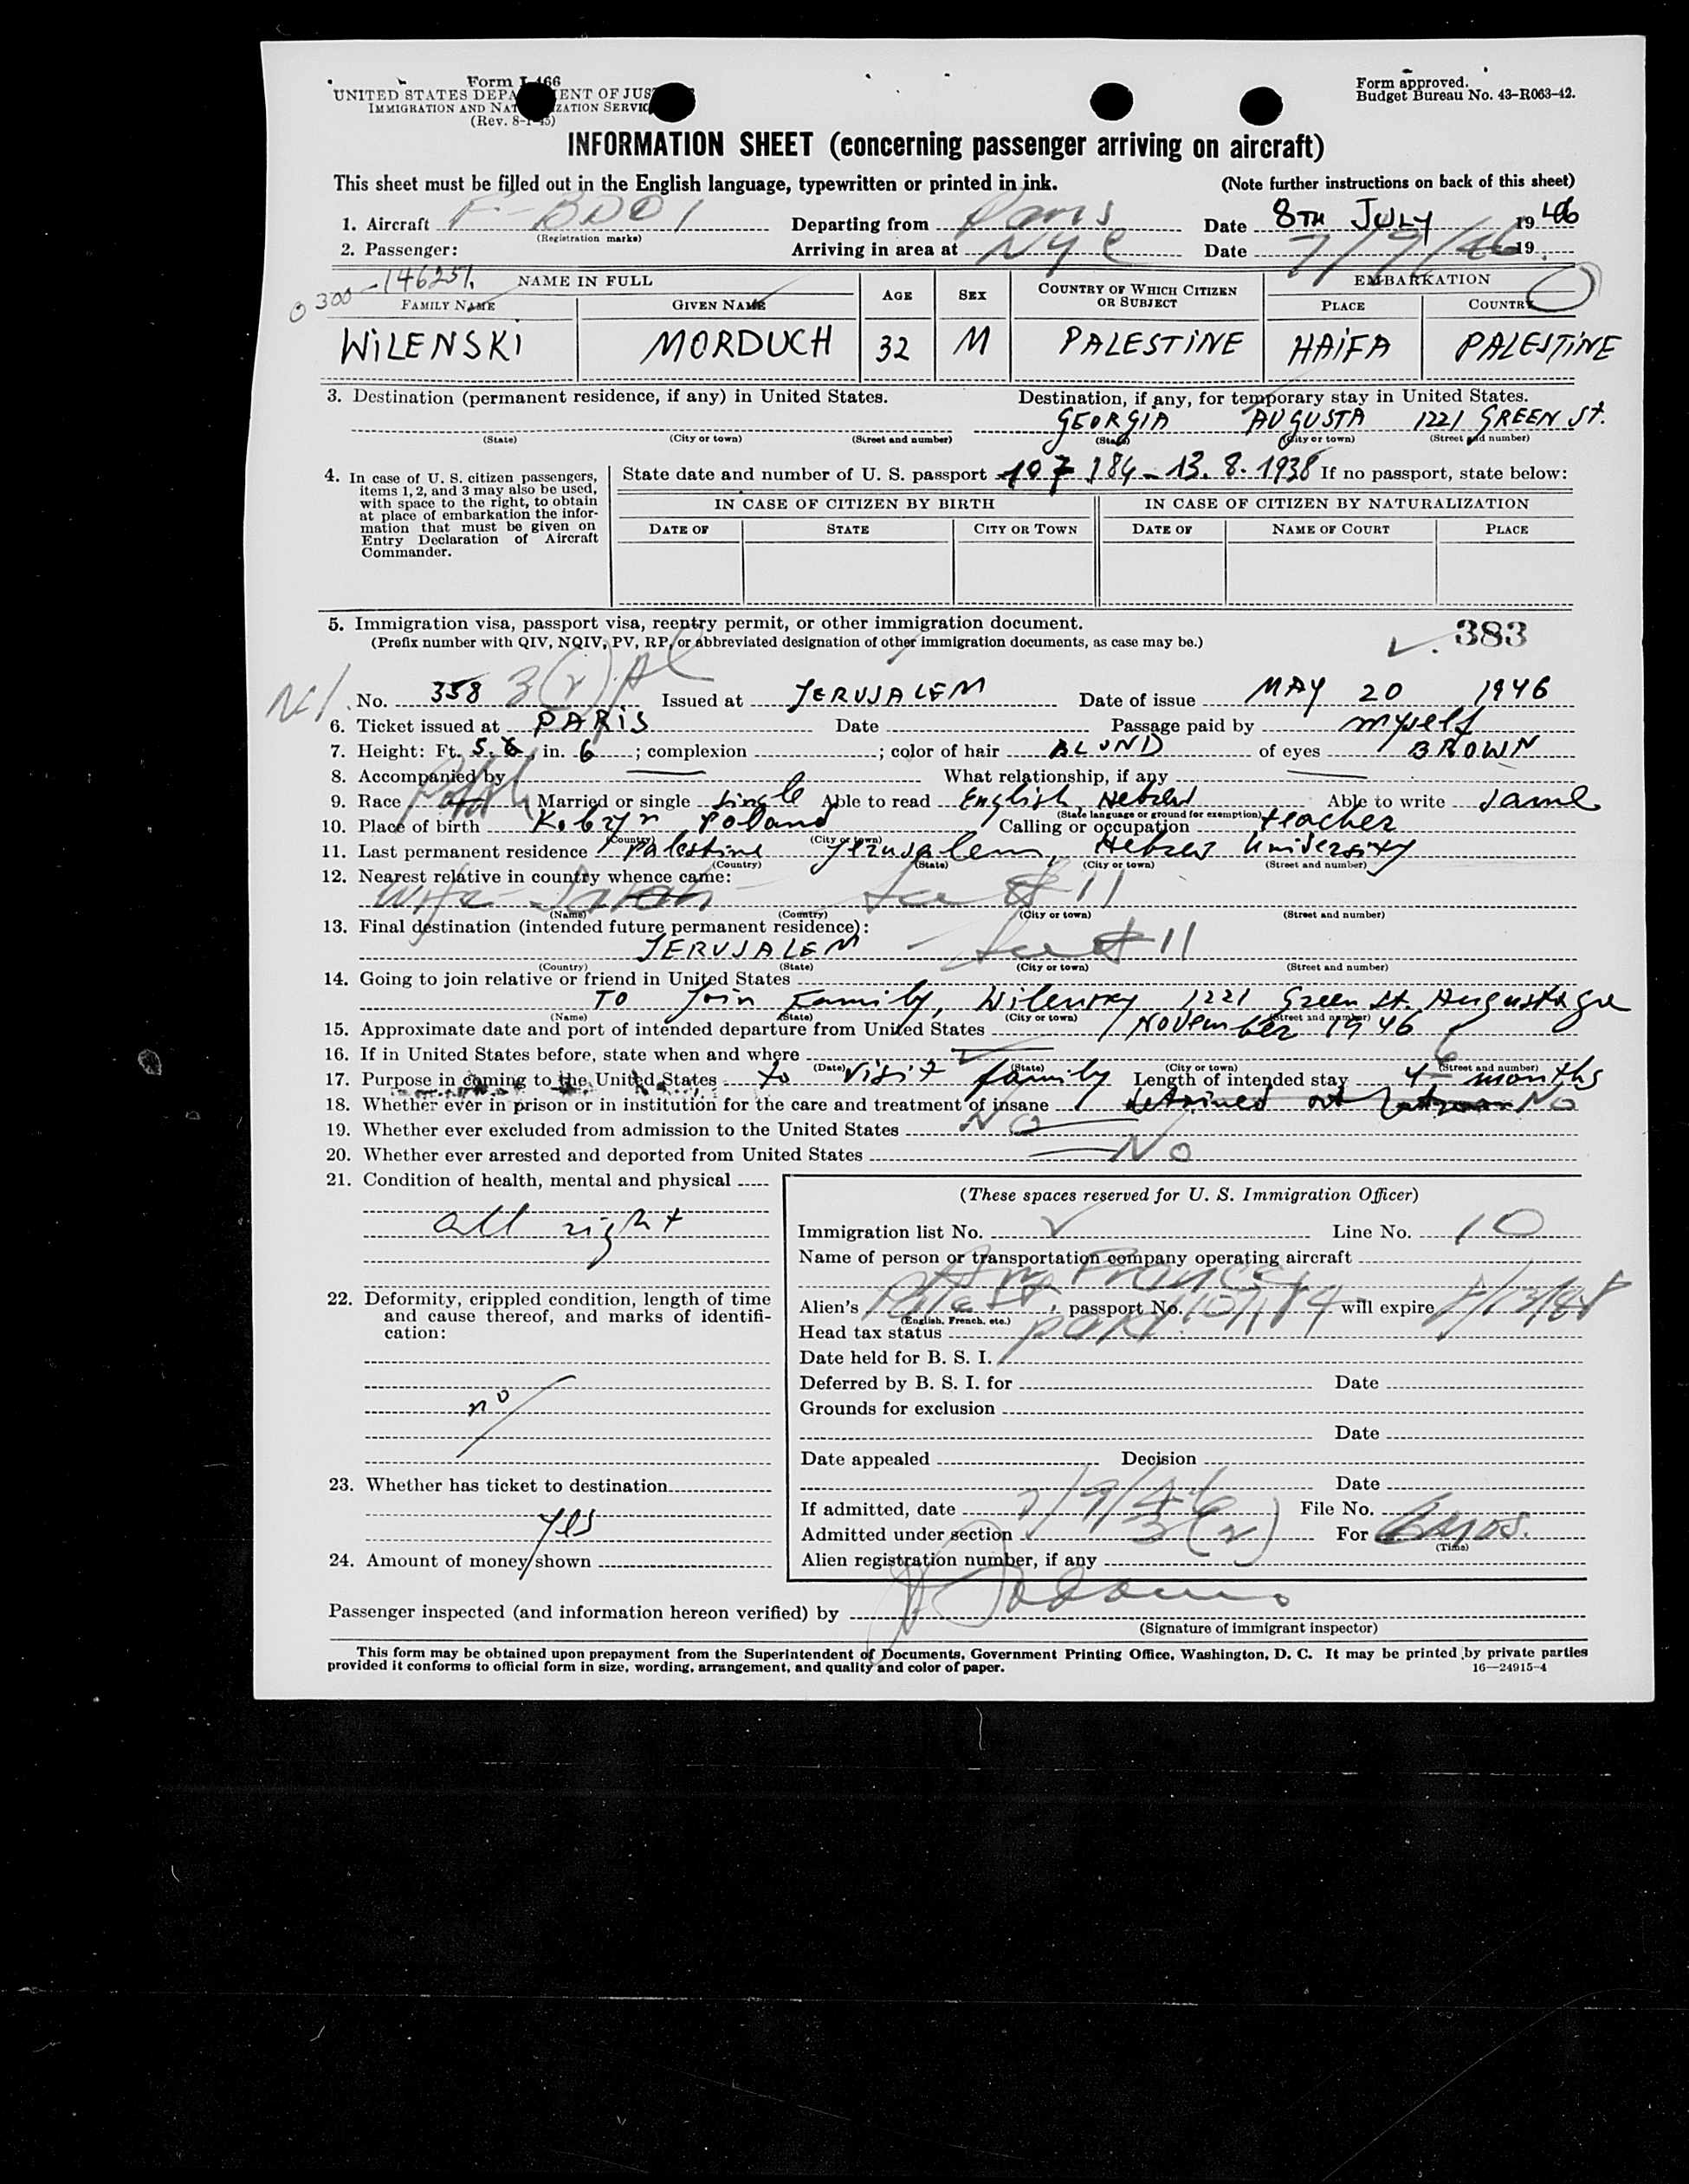 Form I-466
UNITED STATES DEPARTMENT OF JUSTICE
IMMIGRATION AND NATURALIZATION SERVICE
(Rev. 8-1-45)
Form approved.
Budget Bureau No. 43-R063-42.
INFORMATION SHEET (concerning passenger arriving on aircraft)
This sheet must be filled out in the English language, typewritten or printed in ink. (Note further instructions on back of this sheet)
1. Aircraft F-BDOI Departing from Paris Date 8TH JULY 1946
(Registration marks)
2. Passenger: Arriving in area at NYC Date 7/9/46 19
0300-146251
NAME IN FULL AGE SEX COUNTRY OF WHICH CITIZEN OR SUBJECT EMBARKATION
FAMILY NAME GIVEN NAME PLACE COUNTRY
WILENSKI MORDUCH 32 M PALESTINE HAIFA PALESTINE
3. Destination (permanent residence, if any) in United States. Destination, if any, for temporary stay in United States.
GEORGIA AUGUSTA 1221 GREEN St.
(State) (City or town) (Street and number) (State) (City or town) (Street and number)
4. In case of U. S. citizen passengers, items 1, 2, and 3 may also be used, with space to the right, to obtain at place of embarkation the information that must be given on Entry Declaration of Aircraft Commander.
State date and number of U. S. passport 107184 - 13.8.1938 If no passport, state below:
IN CASE OF CITIZEN BY BIRTH IN CASE OF CITIZEN BY NATURALIZATION
DATE OF STATE CITY OR TOWN DATE OF NAME OF COURT PLACE
5. Immigration visa, passport visa, reentry permit, or other immigration document.
(Prefix number with QIV, NQIV, PV, RP, or abbreviated designation of other immigration documents, as case may be.)
383
No. 358 3(2) Issued at JERUSALEM Date of issue MAY 20 1946
6. Ticket issued at PARIS Date Passage paid by myself
7. Height: Ft. 5. in. 6 ; complexion ; color of hair BLOND of eyes BROWN
8. Accompanied by What relationship, if any
9. Race Polish Married or single single Able to read English, Hebrew Able to write same
(State language or ground for exemption)
10. Place of birth Kobryn Poland Calling or occupation teacher
(Country) (City or town)
11. Last permanent residence Palestine Jerusalem, Hebrew University
(Country) (State) (City or town) (Street and number)
12. Nearest relative in country whence came:
wife - Sarah - See # 11
(Name) (Country) (City or town) (Street and number)
13. Final destination (intended future permanent residence):
JERUSALEM - See # 11
(Country) (State) (City or town) (Street and number)
14. Going to join relative or friend in United States
To Join Family, Wilensky 1221 Green St. Augusta
(Name) (State) (City or town) (Street and number)
15. Approximate date and port of intended departure from United States November 1946
16. If in United States before, state when and where
(Date) (State) (City or town) (Street and number)
17. Purpose in coming to the United States to visit family Length of intended stay months
18. Whether ever in prison or in institution for the care and treatment of insane No
19. Whether ever excluded from admission to the United States No
20. Whether ever arrested and deported from United States No
21. Condition of health, mental and physical
all right
22. Deformity, crippled condition, length of time and cause thereof, and marks of identification:
no
23. Whether has ticket to destination
yes
24. Amount of money shown
(These spaces reserved for U. S. Immigration Officer)
Immigration list No. Line No. 10
Name of person or transportation company operating aircraft
Air France
Alien's Palest. passport No. 107184 will expire
(English, French, etc.)
Head tax status
Date held for B. S. I.
Deferred by B. S. I. for Date
Grounds for exclusion
Date
Date appealed Decision
Date
If admitted, date 7/9/46 File No.
Admitted under section 3(2) For 6 mos.
(Time)
Alien registration number, if any
Passenger inspected (and information hereon verified) by
(Signature of immigrant inspector)
This form may be obtained upon prepayment from the Superintendent of Documents, Government Printing Office, Washington, D. C. It may be printed by private parties
provided it conforms to official form in size, wording, arrangement, and quality and color of paper.
16—24915-4